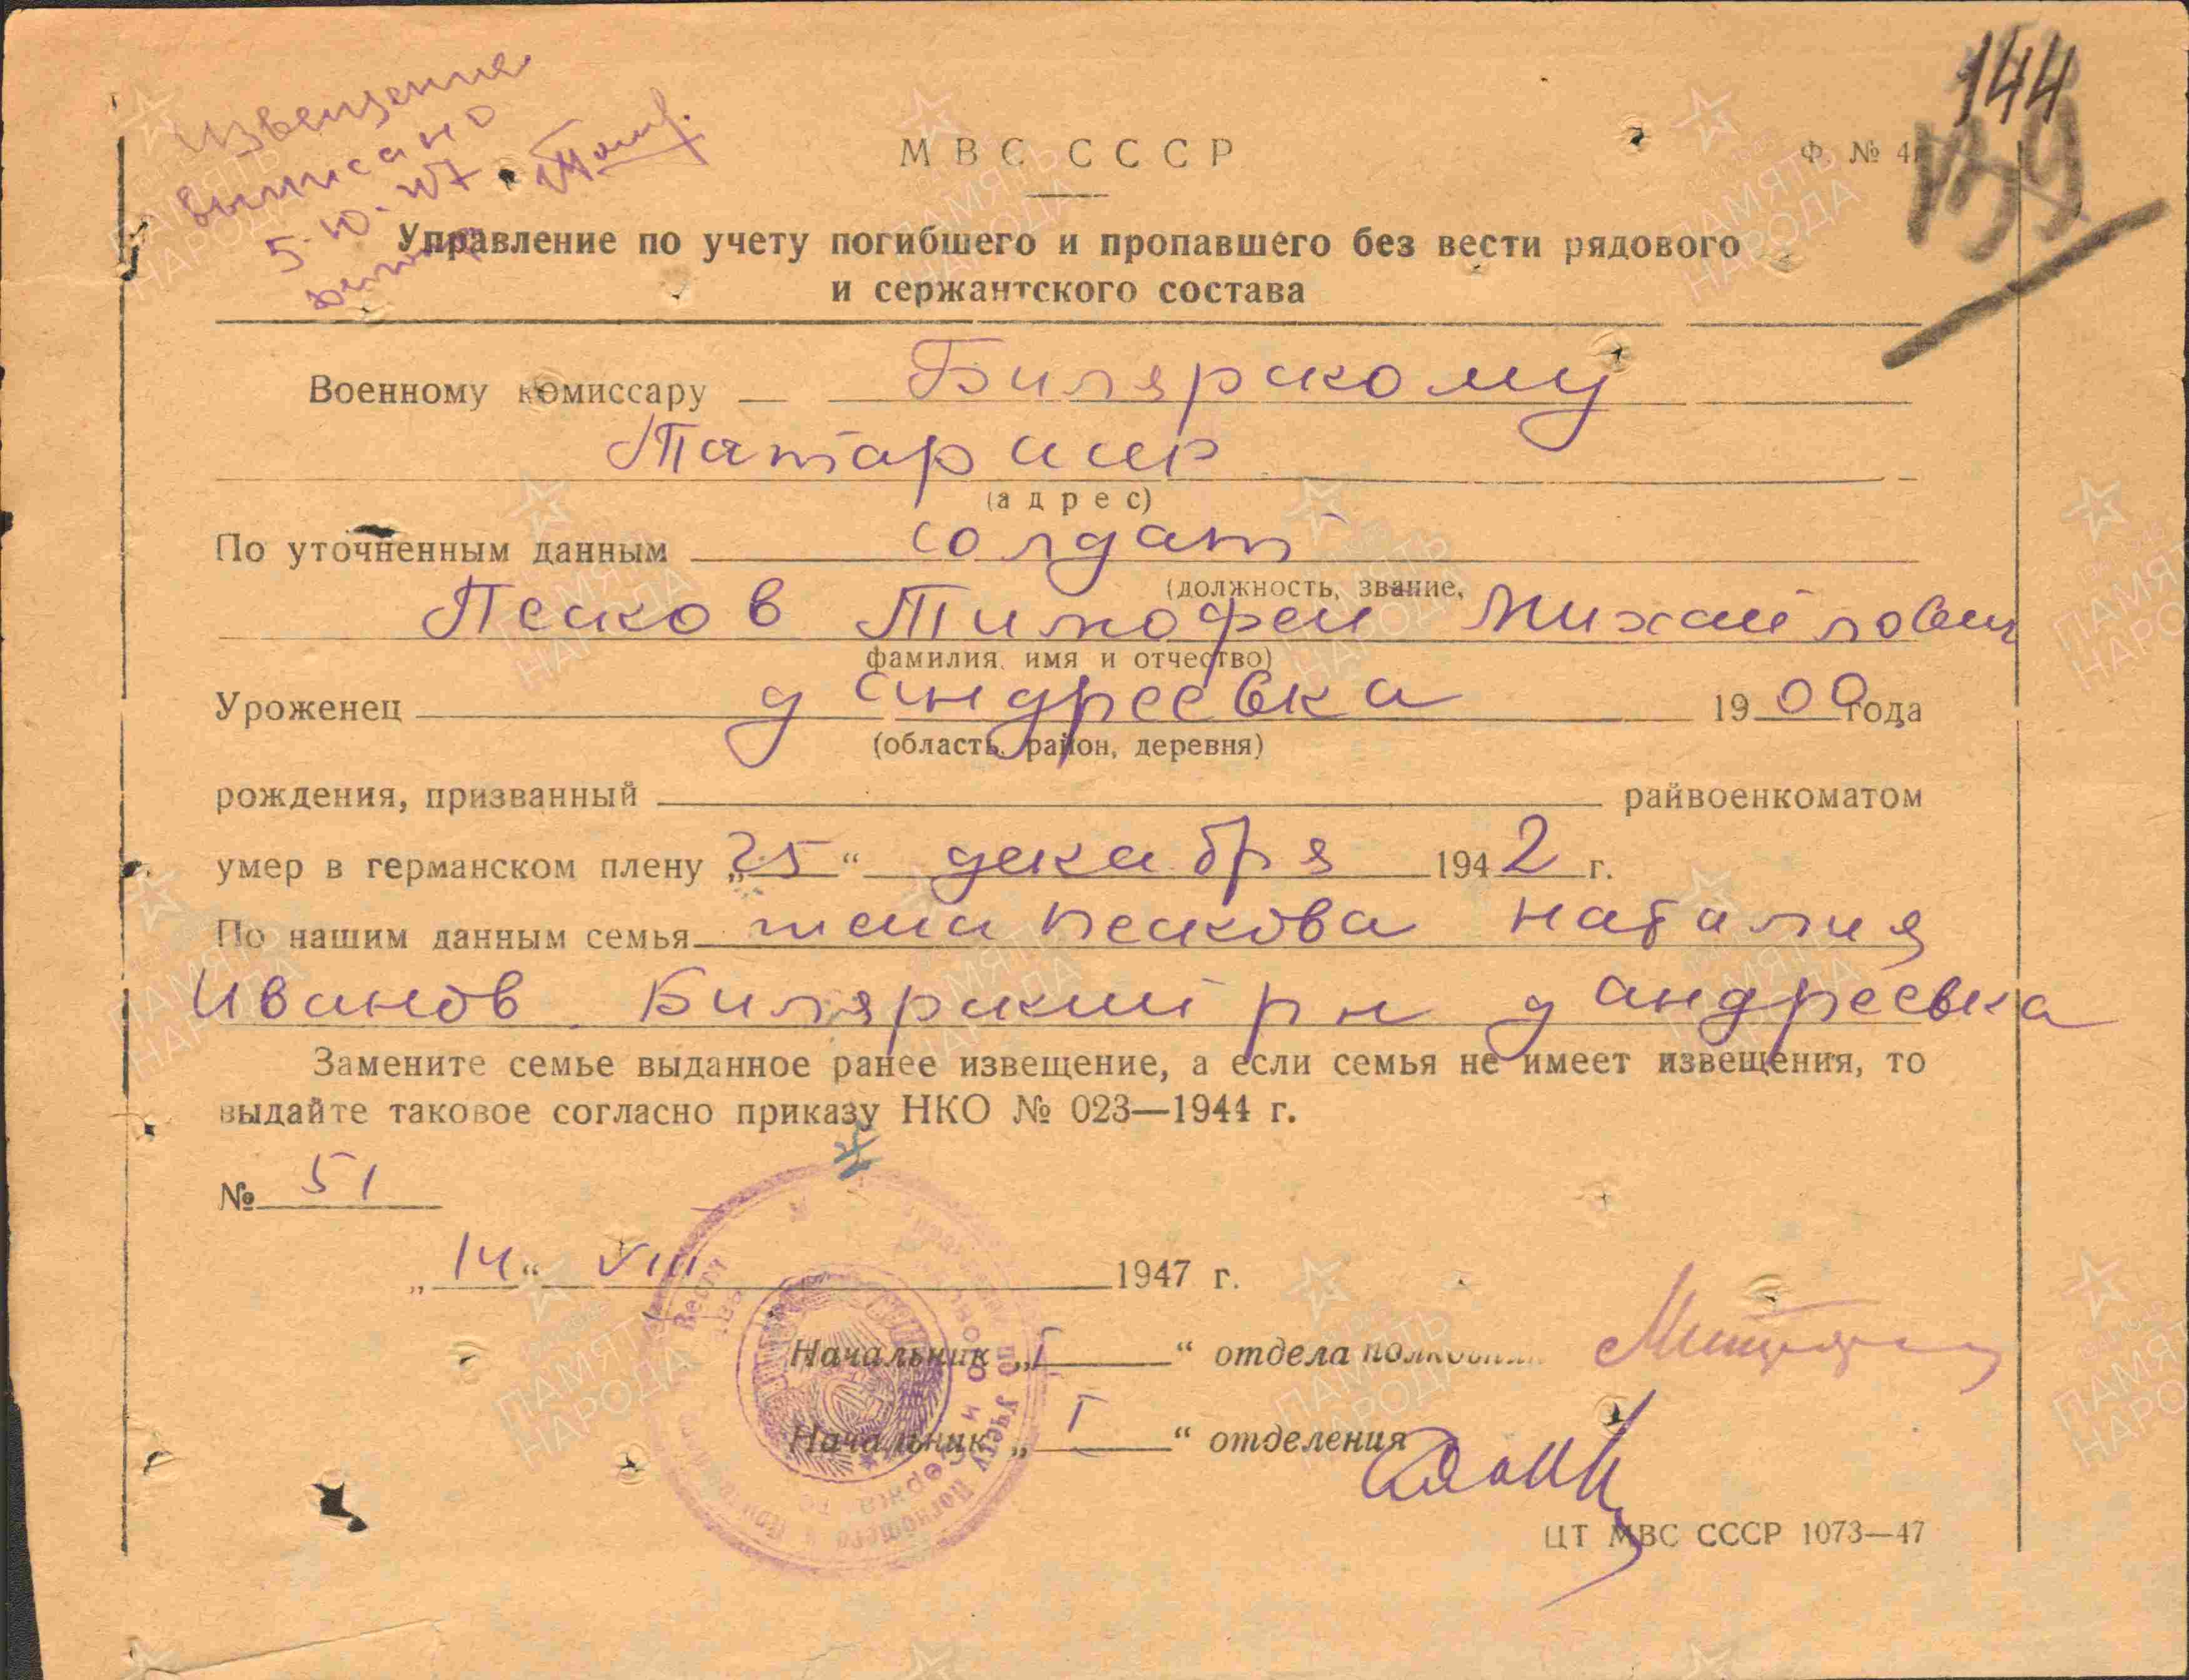 144
139
извещение
выписано
5.10.47
МВС СССР
Ф. № 4
Управление по учету погибшего и пропавшего без вести рядового
и сержантского состава
Военному комиссару Билярскому
Татар ССР
(адрес)
По уточненным данным солдат
(должность, звание,
Песков Тимофей Михайлович
фамилия, имя и отчество)
Уроженец д Андреевка 1900 года
(область, район, деревня)
рождения, призванный райвоенкоматом
умер в германском плену „25“ декабря 1942 г.
По нашим данным семья жена Пескова Наталия
Иванов. Билярский р н д Андреевка
Замените семье выданное ранее извещение, а если семья не имеет извещения, то
выдайте таковое согласно приказу НКО № 023—1944 г.
№ 51
„14“ VIII 1947 г.
Начальник „I“ отдела полковник
Начальник „I“ отделения
ЦТ МВС СССР 1073—47
ПАМЯТЬ НАРОДА